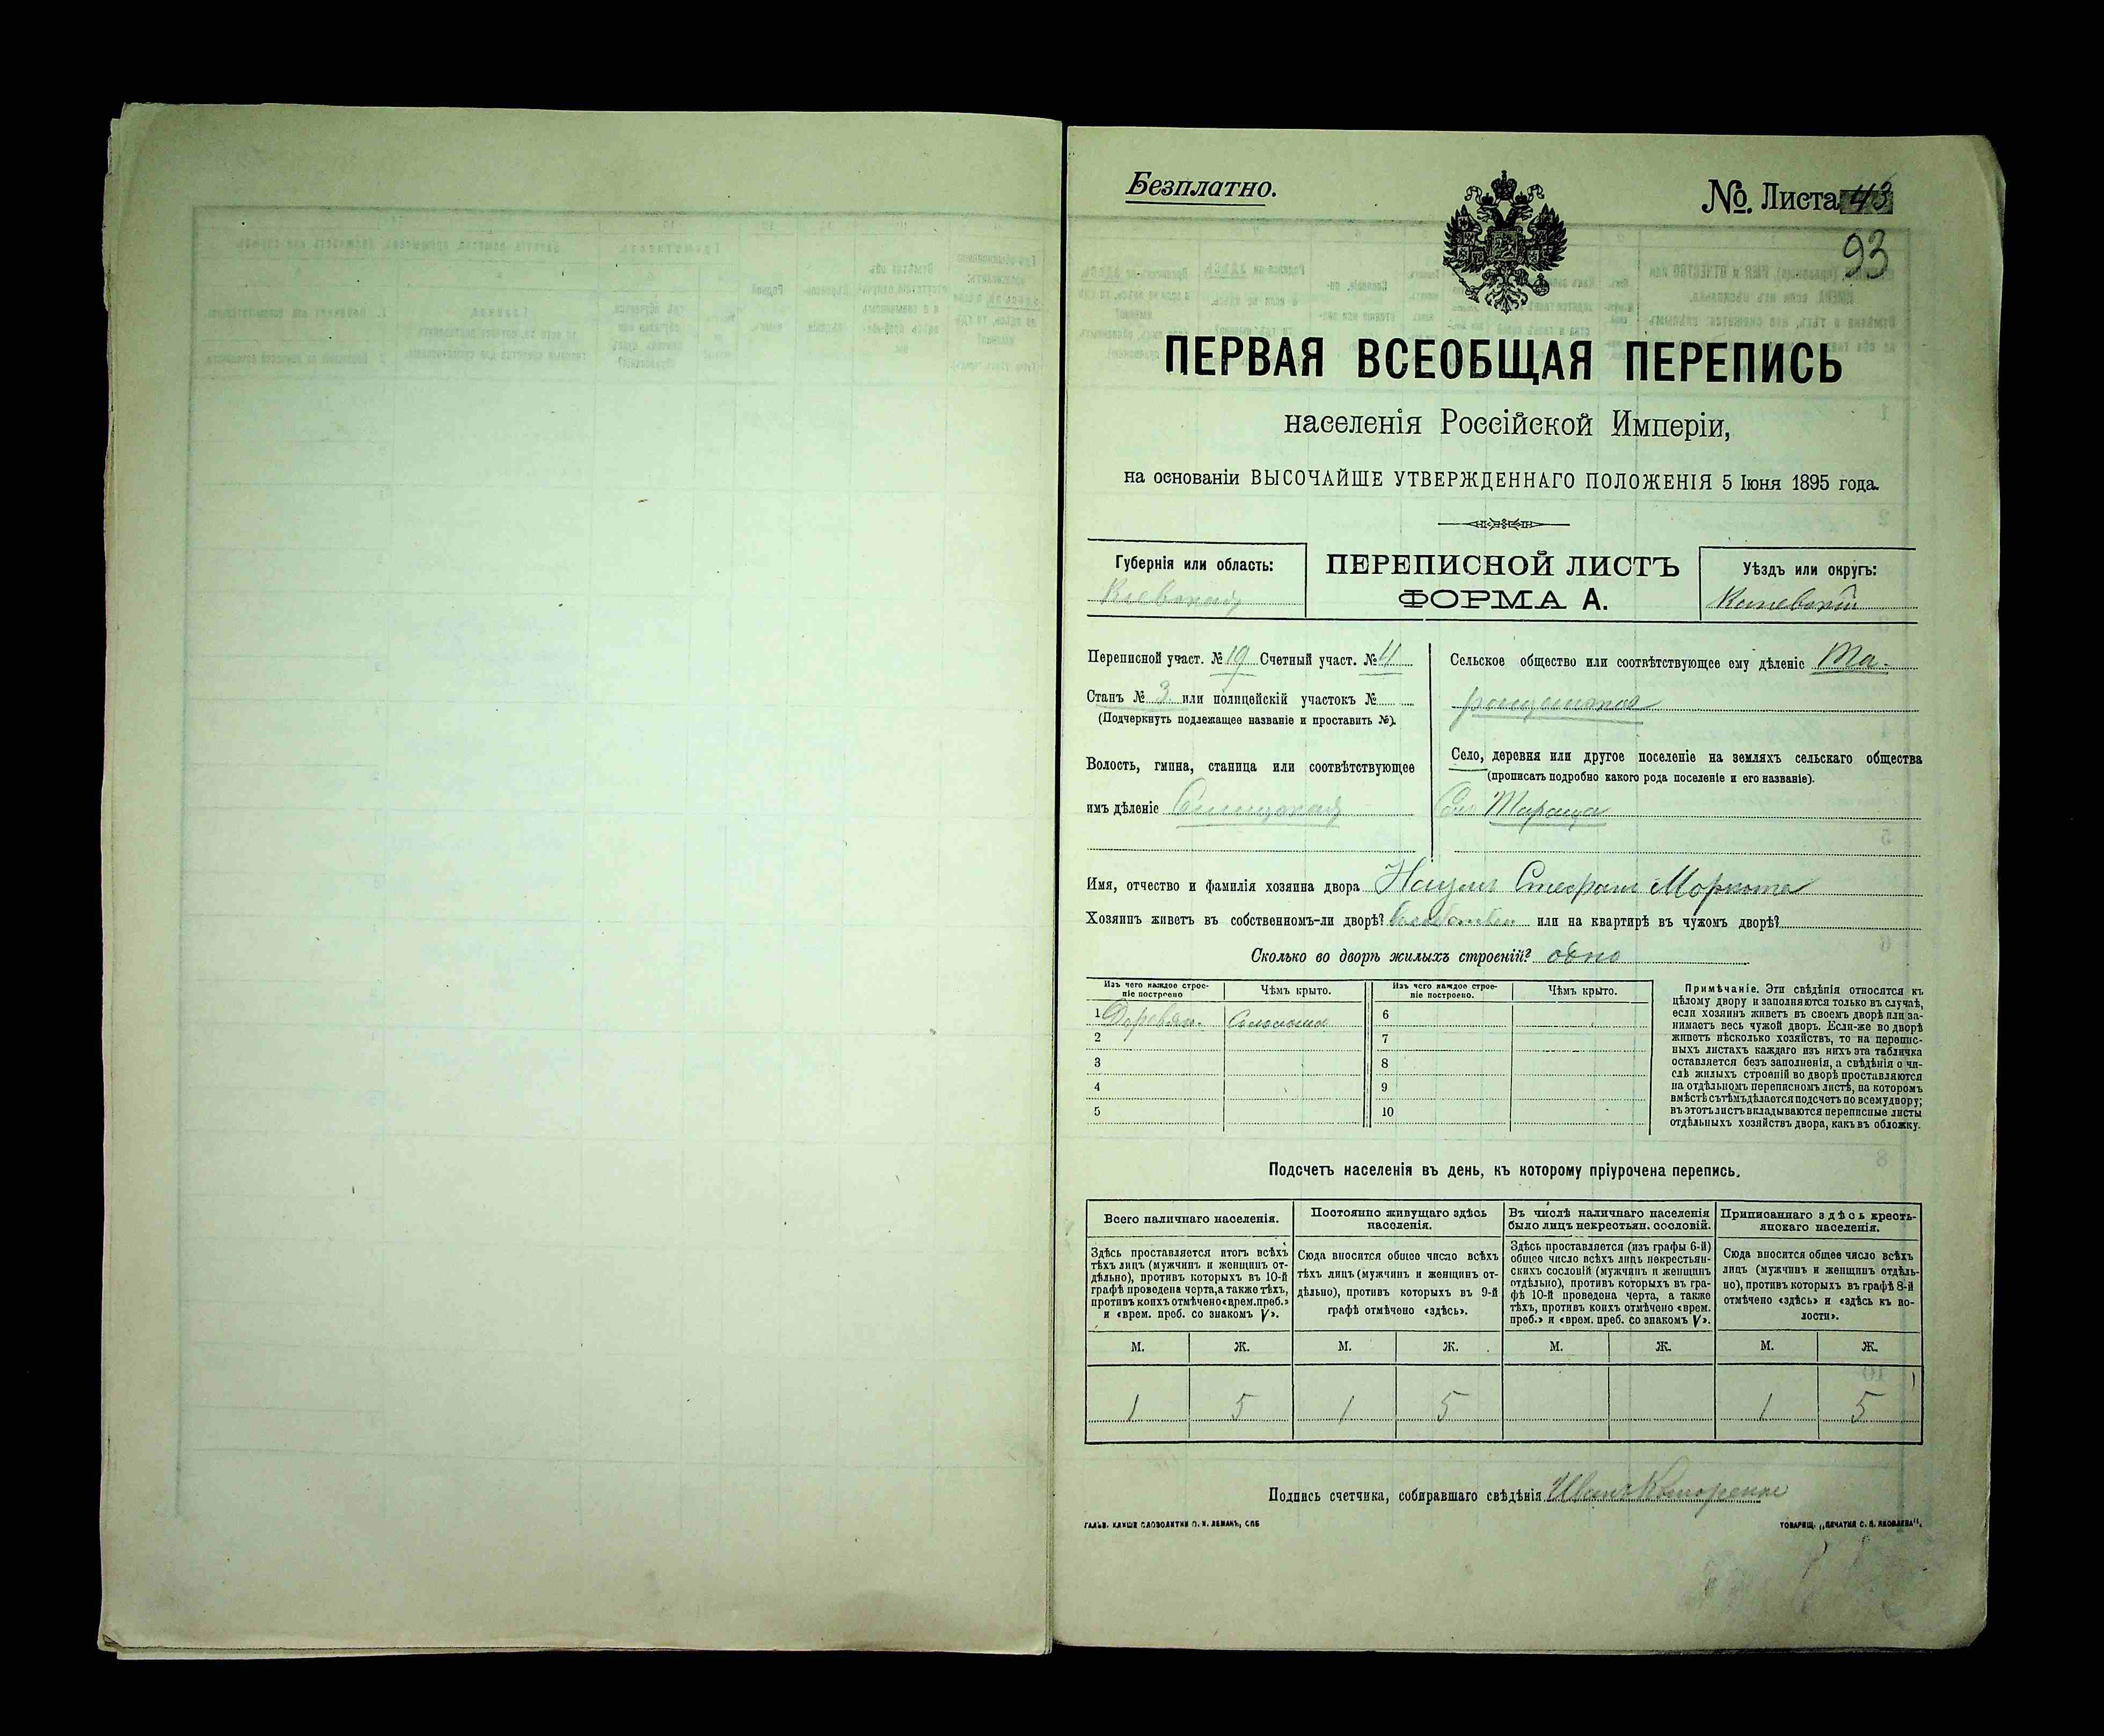 Безплатно.
№. Листа 43
93
ПЕРВАЯ ВСЕОБЩАЯ ПЕРЕПИСЬ
населенія Россійской Имперіи,
на основаніи ВЫСОЧАЙШЕ УТВЕРЖДЕННАГО ПОЛОЖЕНІЯ 5 Іюня 1895 года.
Губернія или область:
Кіевская
ПЕРЕПИСНОЙ ЛИСТЪ
ФОРМА А.
Уѣздъ или округъ:
Каневскій
Переписной участ. № 19 Счетный участ. № 4
Станъ № 3 или полицейскій участокъ №
(Подчеркнуть подлежащее названіе и проставить №).
Волость, гмина, станица или соотвѣтствующее
имъ дѣленіе
Сельское общество или соотвѣтствующее ему дѣленіе Та-
ращанское
Село, деревня или другое поселеніе на земляхъ сельскаго общества
(прописать подробно какого рода поселеніе и его названіе).
Село Тараща
Имя, отчество и фамилія хозяина двора Стефан
Хозяинъ живетъ въ собственномъ-ли дворѣ? или на квартирѣ въ чужомъ дворѣ?
Сколько во дворѣ жилыхъ строеній? одно
Изъ чего каждое строе-
ніе построено
Чѣмъ крыто.
Изъ чего каждое строе-
ніе построено.
Чѣмъ крыто.
1 Деревян. Соломою
6
2
7
3
8
4
9
5
10
Примѣчаніе. Эти свѣдѣнія относятся къ
цѣлому двору и заполняются только въ случаѣ,
если хозяинъ живетъ въ своемъ дворѣ или за-
нимаетъ весь чужой дворъ. Если-же во дворѣ
живетъ нѣсколько хозяйствъ, то на перепис-
ныхъ листахъ каждаго изъ нихъ эта табличка
оставляется безъ заполненія, а свѣдѣнія о чи-
слѣ жилыхъ строеній во дворѣ проставляются
на отдѣльномъ переписномъ листѣ, на которомъ
вмѣстѣ съ тѣмъ дѣлается подсчетъ по всему двору;
въ этотъ листъ вкладываются переписные листы
отдѣльныхъ хозяйствъ двора, какъ въ обложку.
Подсчетъ населенія въ день, къ которому пріурочена перепись.
Всего наличнаго населенія.
Здѣсь проставляется итогъ всѣхъ
тѣхъ лицъ (мужчинъ и женщинъ от-
дѣльно), противъ которыхъ въ 10-й
графѣ проведена черта, а также тѣхъ,
противъ коихъ отмѣчено «врем. преб.»
и «врем. преб. со знакомъ V».
Постоянно живущаго здѣсь
населенія.
Сюда вносится общее число всѣхъ
тѣхъ лицъ (мужчинъ и женщинъ от-
дѣльно), противъ которыхъ въ 9-й
графѣ отмѣчено «здѣсь».
Въ числѣ наличнаго населенія
было лицъ некрестьян. сословій.
Здѣсь проставляется (изъ графы 6-й)
общее число всѣхъ лицъ некрестьян-
скихъ сословій (мужчинъ и женщинъ
отдѣльно), противъ которыхъ въ гра-
фѣ 10-й проведена черта, а также
тѣхъ, противъ коихъ отмѣчено «врем.
преб.» и «врем. преб. со знакомъ V».
Приписаннаго здѣсь кресть-
янскаго населенія.
Сюда вносится общее число всѣхъ
лицъ (мужчинъ и женщинъ отдѣль-
но), противъ которыхъ въ графѣ 8-й
отмѣчено «здѣсь» и «здѣсь къ во-
лости».
М. Ж. М. Ж. М. Ж. М. Ж.
1 5 1 5 1 5
Подпись счетчика, собиравшаго свѣдѣнія Иванъ
ГАЛЬВ. КЛИШЕ СЛОВОЛИТНИ О. И. ЛЕМАНЪ, СПБ
ТОВАРИЩ. „ПЕЧАТНЯ С. П. ЯКОВЛЕВА".